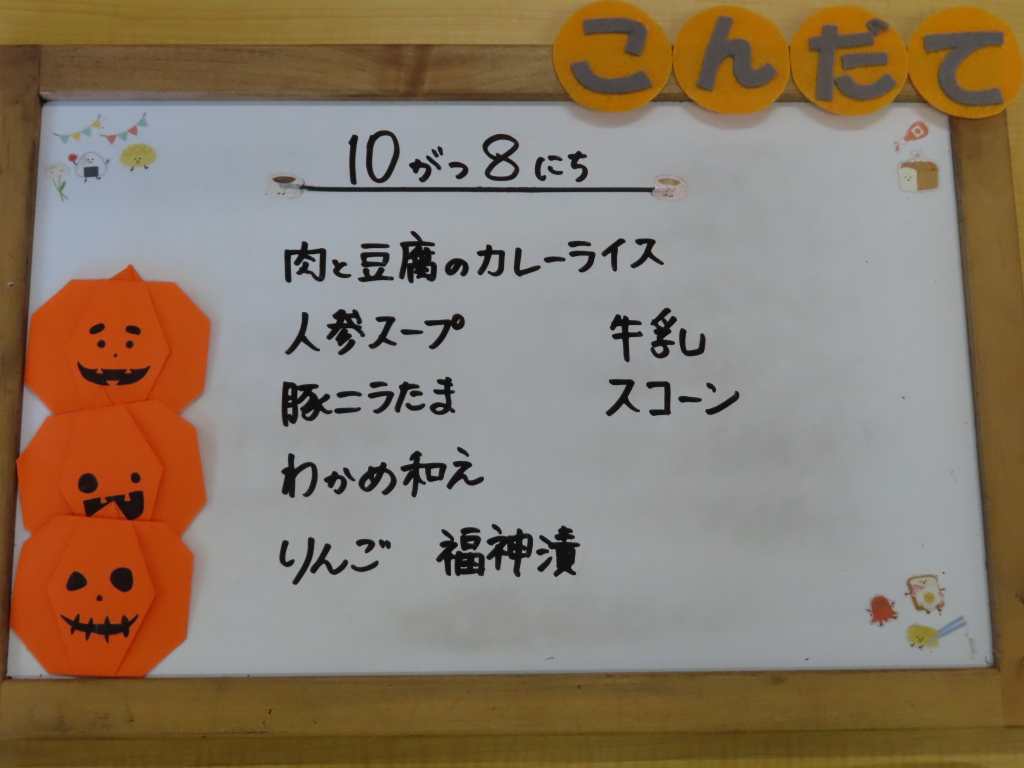 こんだて
10がつ8にち
肉と豆腐のカレーライス
人参スープ 牛乳
豚ニラたま スコーン
わかめ和え
りんご 福神漬